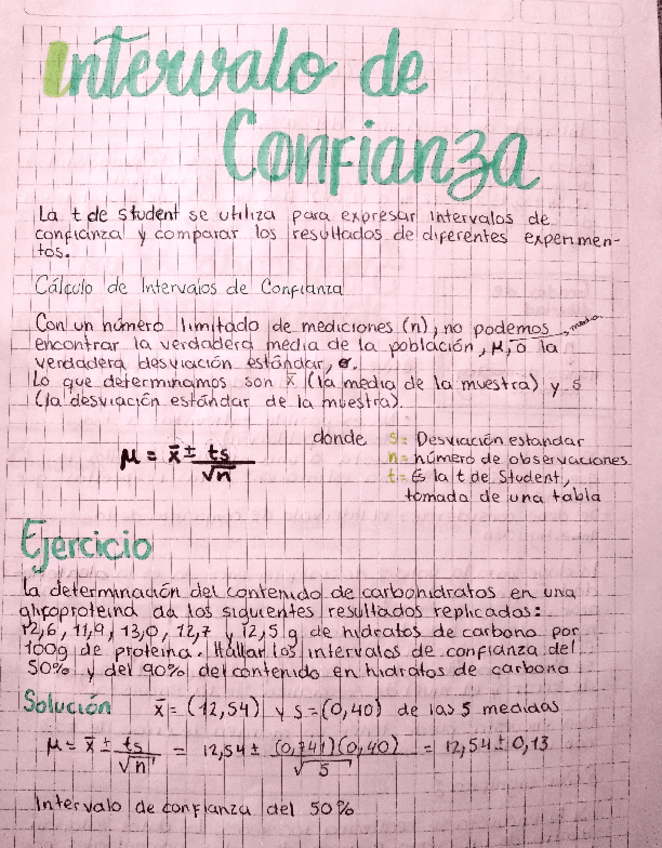 Intervalo de
Confianza
La t de student se utiliza para expresar intervalos de
confianza y comparar los resultados de diferentes experimen-
tos.
Cálculo de Intervalos de Confianza
Con un número limitado de mediciones (n), no podemos
encontrar la verdadera media de la población, μ, o la media
verdadera desviación estándar, σ.
Lo que determinamos son x̄ (la media de la muestra) y s
(la desviación estándar de la muestra).
μ = x̄ ± ts/√n
donde s= Desviación estandar
n= número de observaciones
t= Es la t de Student,
tomada de una tabla
Ejercicio
La determinación del contenido de carbohidratos en una
glicoproteina da los siguientes resultados replicados:
12,6, 11,9, 13,0, 12,7 y 12,5 g de hidratos de carbono por
100g de proteína. Hallar los intervalos de confianza del
50% y del 90% del contenido en hidratos de carbono
Solución x̄ = (12,54) y s=(0,40) de las 5 medidas
μ = x̄ ± ts/√n = 12,54 ± (0,741)(0,40)/√5 = 12,54 ± 0,13
Intervalo de confianza del 50%